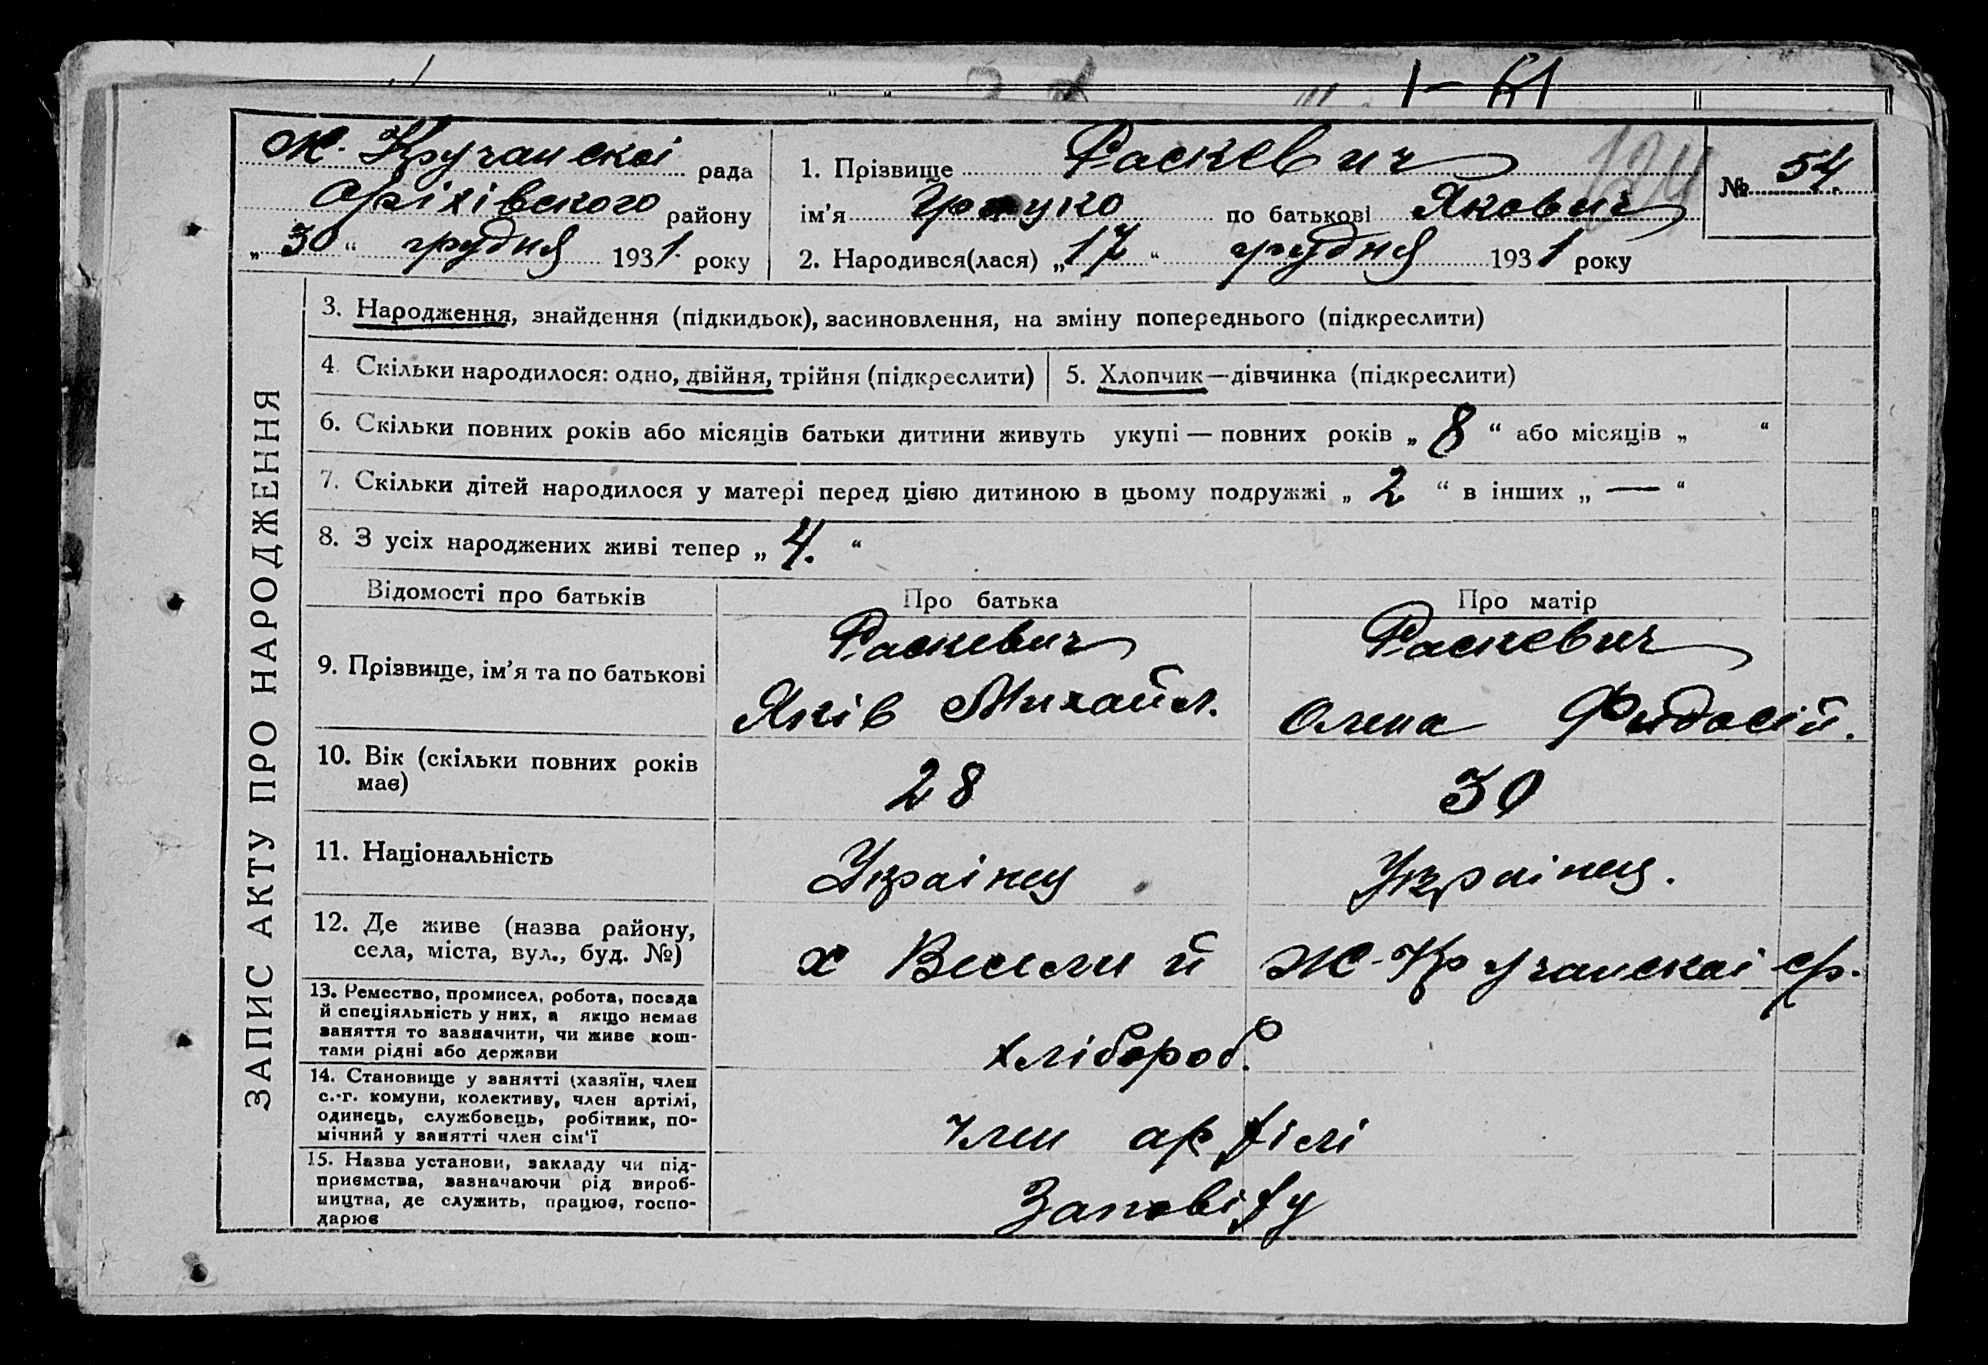 1-61
Ж. Кручанскої рада
Оріхівского району
„30“ грудня 1931. року
1. Прізвище Раскевич
ім’я Грицко по батькові Якович
2. Народився(лася) „17“ грудня 1931 року
№ 54.
124
ЗАПИС АКТУ ПРО НАРОДЖЕННЯ
3. Народження, знайдення (підкидьок), засиновлення, на зміну попереднього (підкреслити)
4. Скільки народилося: одно, двійня, трійня (підкреслити)
5. Хлопчик—дівчинка (підкреслити)
6. Скільки повних років або місяців батьки дитини живуть укупі — повних років „8“ або місяців „ “
7. Скільки дітей народилося у матері перед цією дитиною в цьому подружжі „2“ в інших „—“
8. З усіх народжених живі тепер „4.“
Відомості про батьків
Про батька
Про матір
9. Прізвище, ім’я та по батькові
Раскевич
Яків Михайл.
Раскевич
Олена Фидосій.
10. Вік (скільки повних років
має)
28
30
11. Національність
Українц
Українц.
12. Де живе (назва району,
села, міста, вул., буд. №)
х Веселий Ж-Кручанскої ср.
13. Ремество, промисел, робота, посада
й спеціяльність у них, а якщо немає
заняття то зазначити, чи живе кош-
тами рідні або держави
хлібороб.
14. Становище у занятті (хазяїн, член
с.-г. комуни, колективу, член артілі,
одинець, службовець, робітник, по-
мічний у занятті член сім’ї
член артілі
15. Назва установи, закладу чи під-
приємства, зазначаючи рід вироб-
ництва, де служить, працює, госпо-
дарює
Заповіту